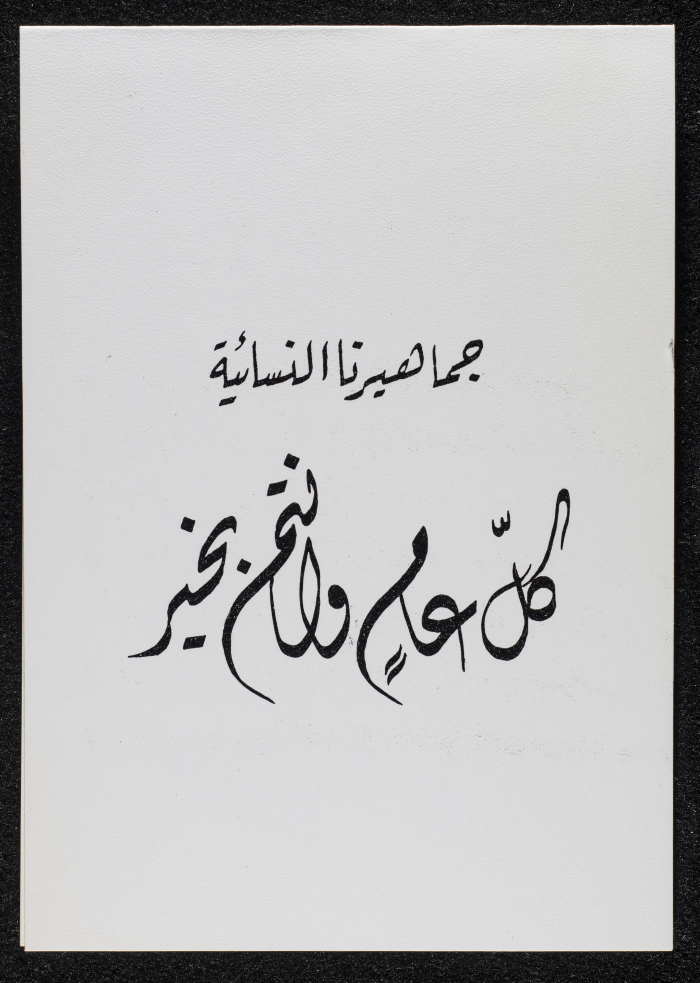 جماهيرنا النسائية
كلّ عامٍ وانتن بخير